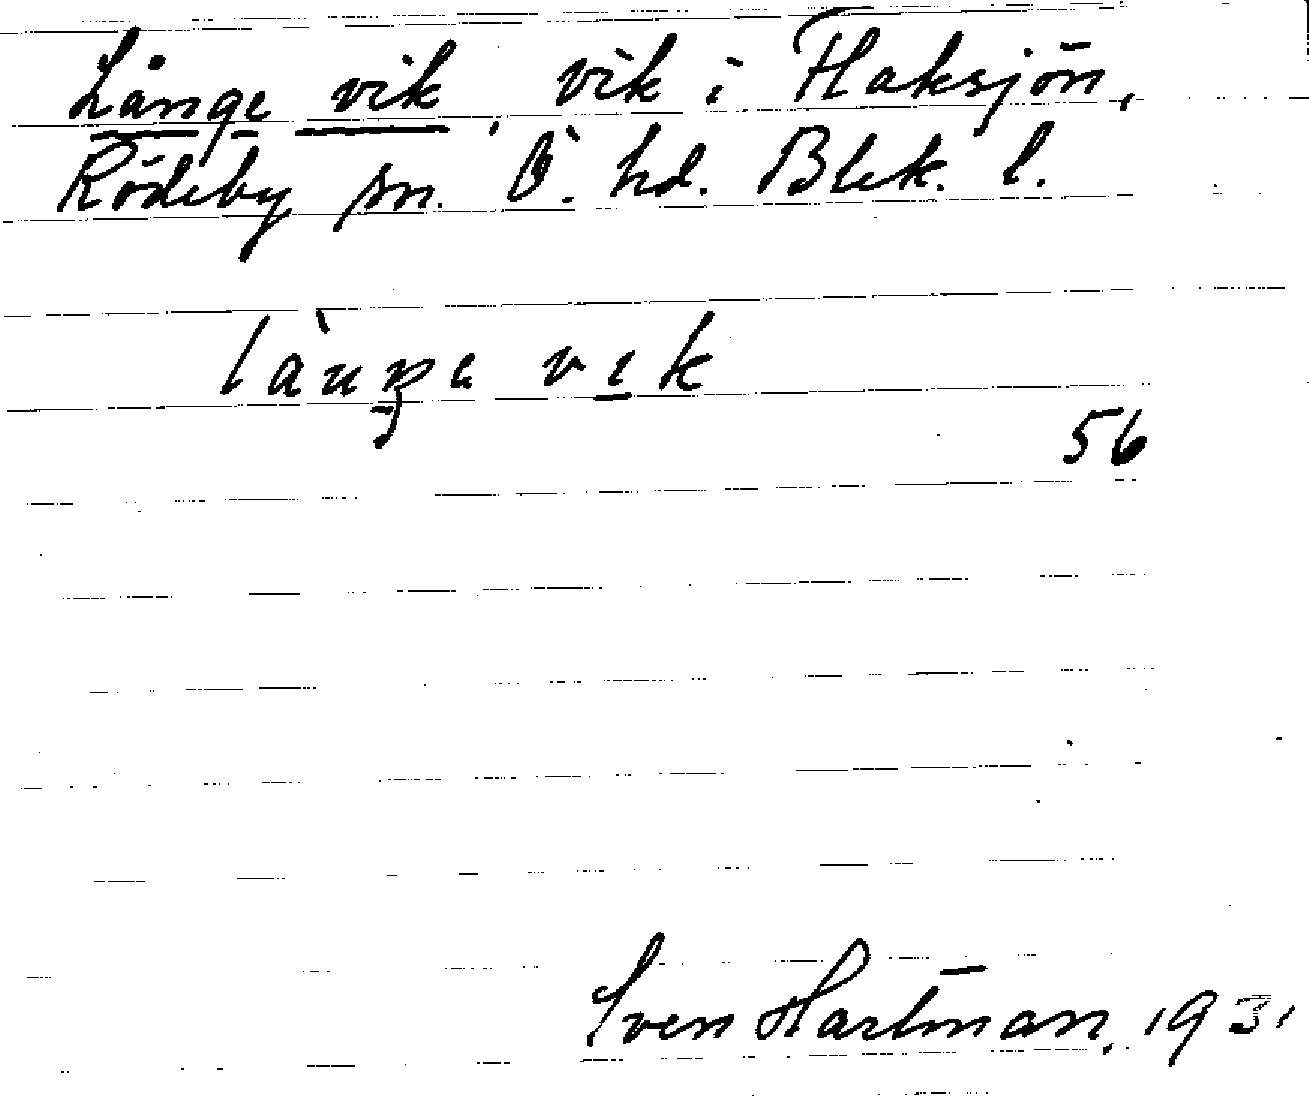 Långe vik, vik i Haksjön,
Rödeby sn. Ö. hd. Blek. l.
vik
56
Sven Hartman, 1931